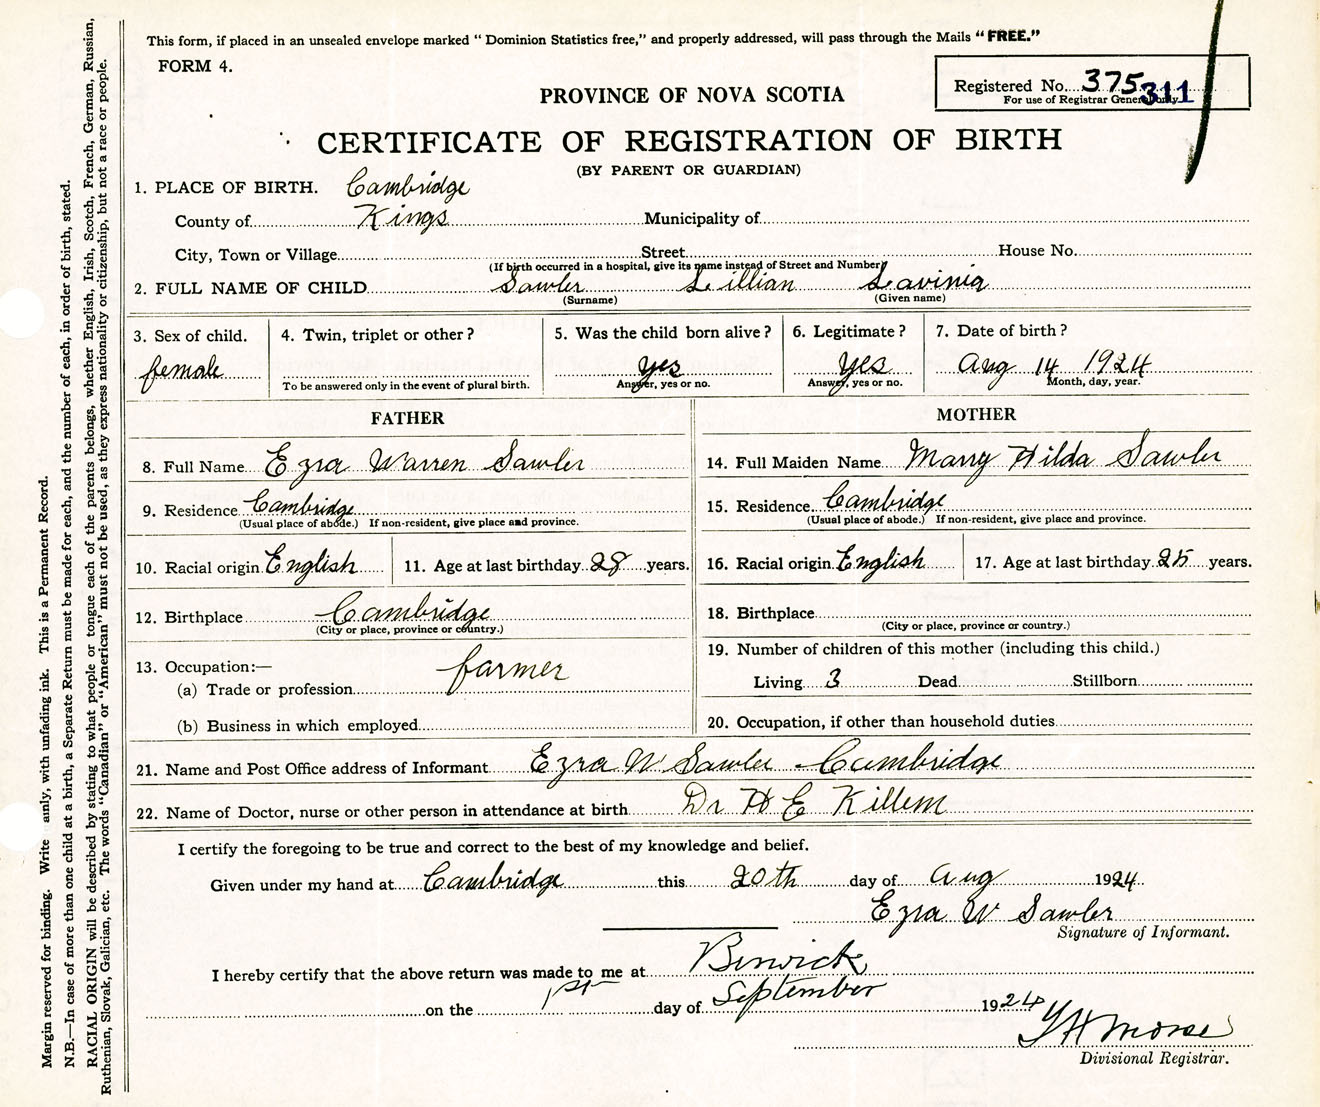 This form, if placed in an unsealed envelope marked " Dominion Statistics free," and properly addressed, will pass through the Mails "FREE."
FORM 4.
Registered No. 375 311
For use of Registrar General only
PROVINCE OF NOVA SCOTIA
CERTIFICATE OF REGISTRATION OF BIRTH
(BY PARENT OR GUARDIAN)
1. PLACE OF BIRTH. Cambridge
County of Kings Municipality of
City, Town or Village Street House No.
(If birth occurred in a hospital, give its name instead of Street and Number)
2. FULL NAME OF CHILD Sawler Lillian Lavinia
(Surname) (Given name)
3. Sex of child. 4. Twin, triplet or other? 5. Was the child born alive? 6. Legitimate? 7. Date of birth?
female yes yes Aug 14 1924
To be answered only in the event of plural birth. Answer, yes or no. Answer, yes or no. Month, day, year.
FATHER MOTHER
8. Full Name Ezra Warren Sawler 14. Full Maiden Name Marry Hilda Sawler
9. Residence Cambridge 15. Residence Cambridge
(Usual place of abode.) If non-resident, give place and province. (Usual place of abode.) If non-resident, give place and province.
10. Racial origin English 11. Age at last birthday 28 years. 16. Racial origin English 17. Age at last birthday 25 years.
12. Birthplace Cambridge 18. Birthplace
(City or place, province or country.) (City or place, province or country.)
13. Occupation:— farmer 19. Number of children of this mother (including this child.)
(a) Trade or profession Living 3 Dead Stillborn
(b) Business in which employed 20. Occupation, if other than household duties
21. Name and Post Office address of Informant Ezra W Sawler Cambridge
22. Name of Doctor, nurse or other person in attendance at birth Dr H E Killem
I certify the foregoing to be true and correct to the best of my knowledge and belief.
Given under my hand at Cambridge this 20th day of Aug 1924
Ezra W Sawler
Signature of Informant.
I hereby certify that the above return was made to me at Berwick
on the 1st day of September 1924
Morse
Divisional Registrar.
Margin reserved for binding. Write ainly, with unfading ink. This is a Permanent Record.
N.B.—In case of more than one child at a birth, a Separate Return must be made for each, and the number of each, in order of birth, stated.
RACIAL ORIGIN will be described by stating to what people or tongue each of the parents belongs, whether English, Irish, Scotch, French, German, Russian,
Ruthenian, Slovak, Galician, etc. The words "Canadian" or "American" must not be used, as they express nationality or citizenship, but not a race or people.